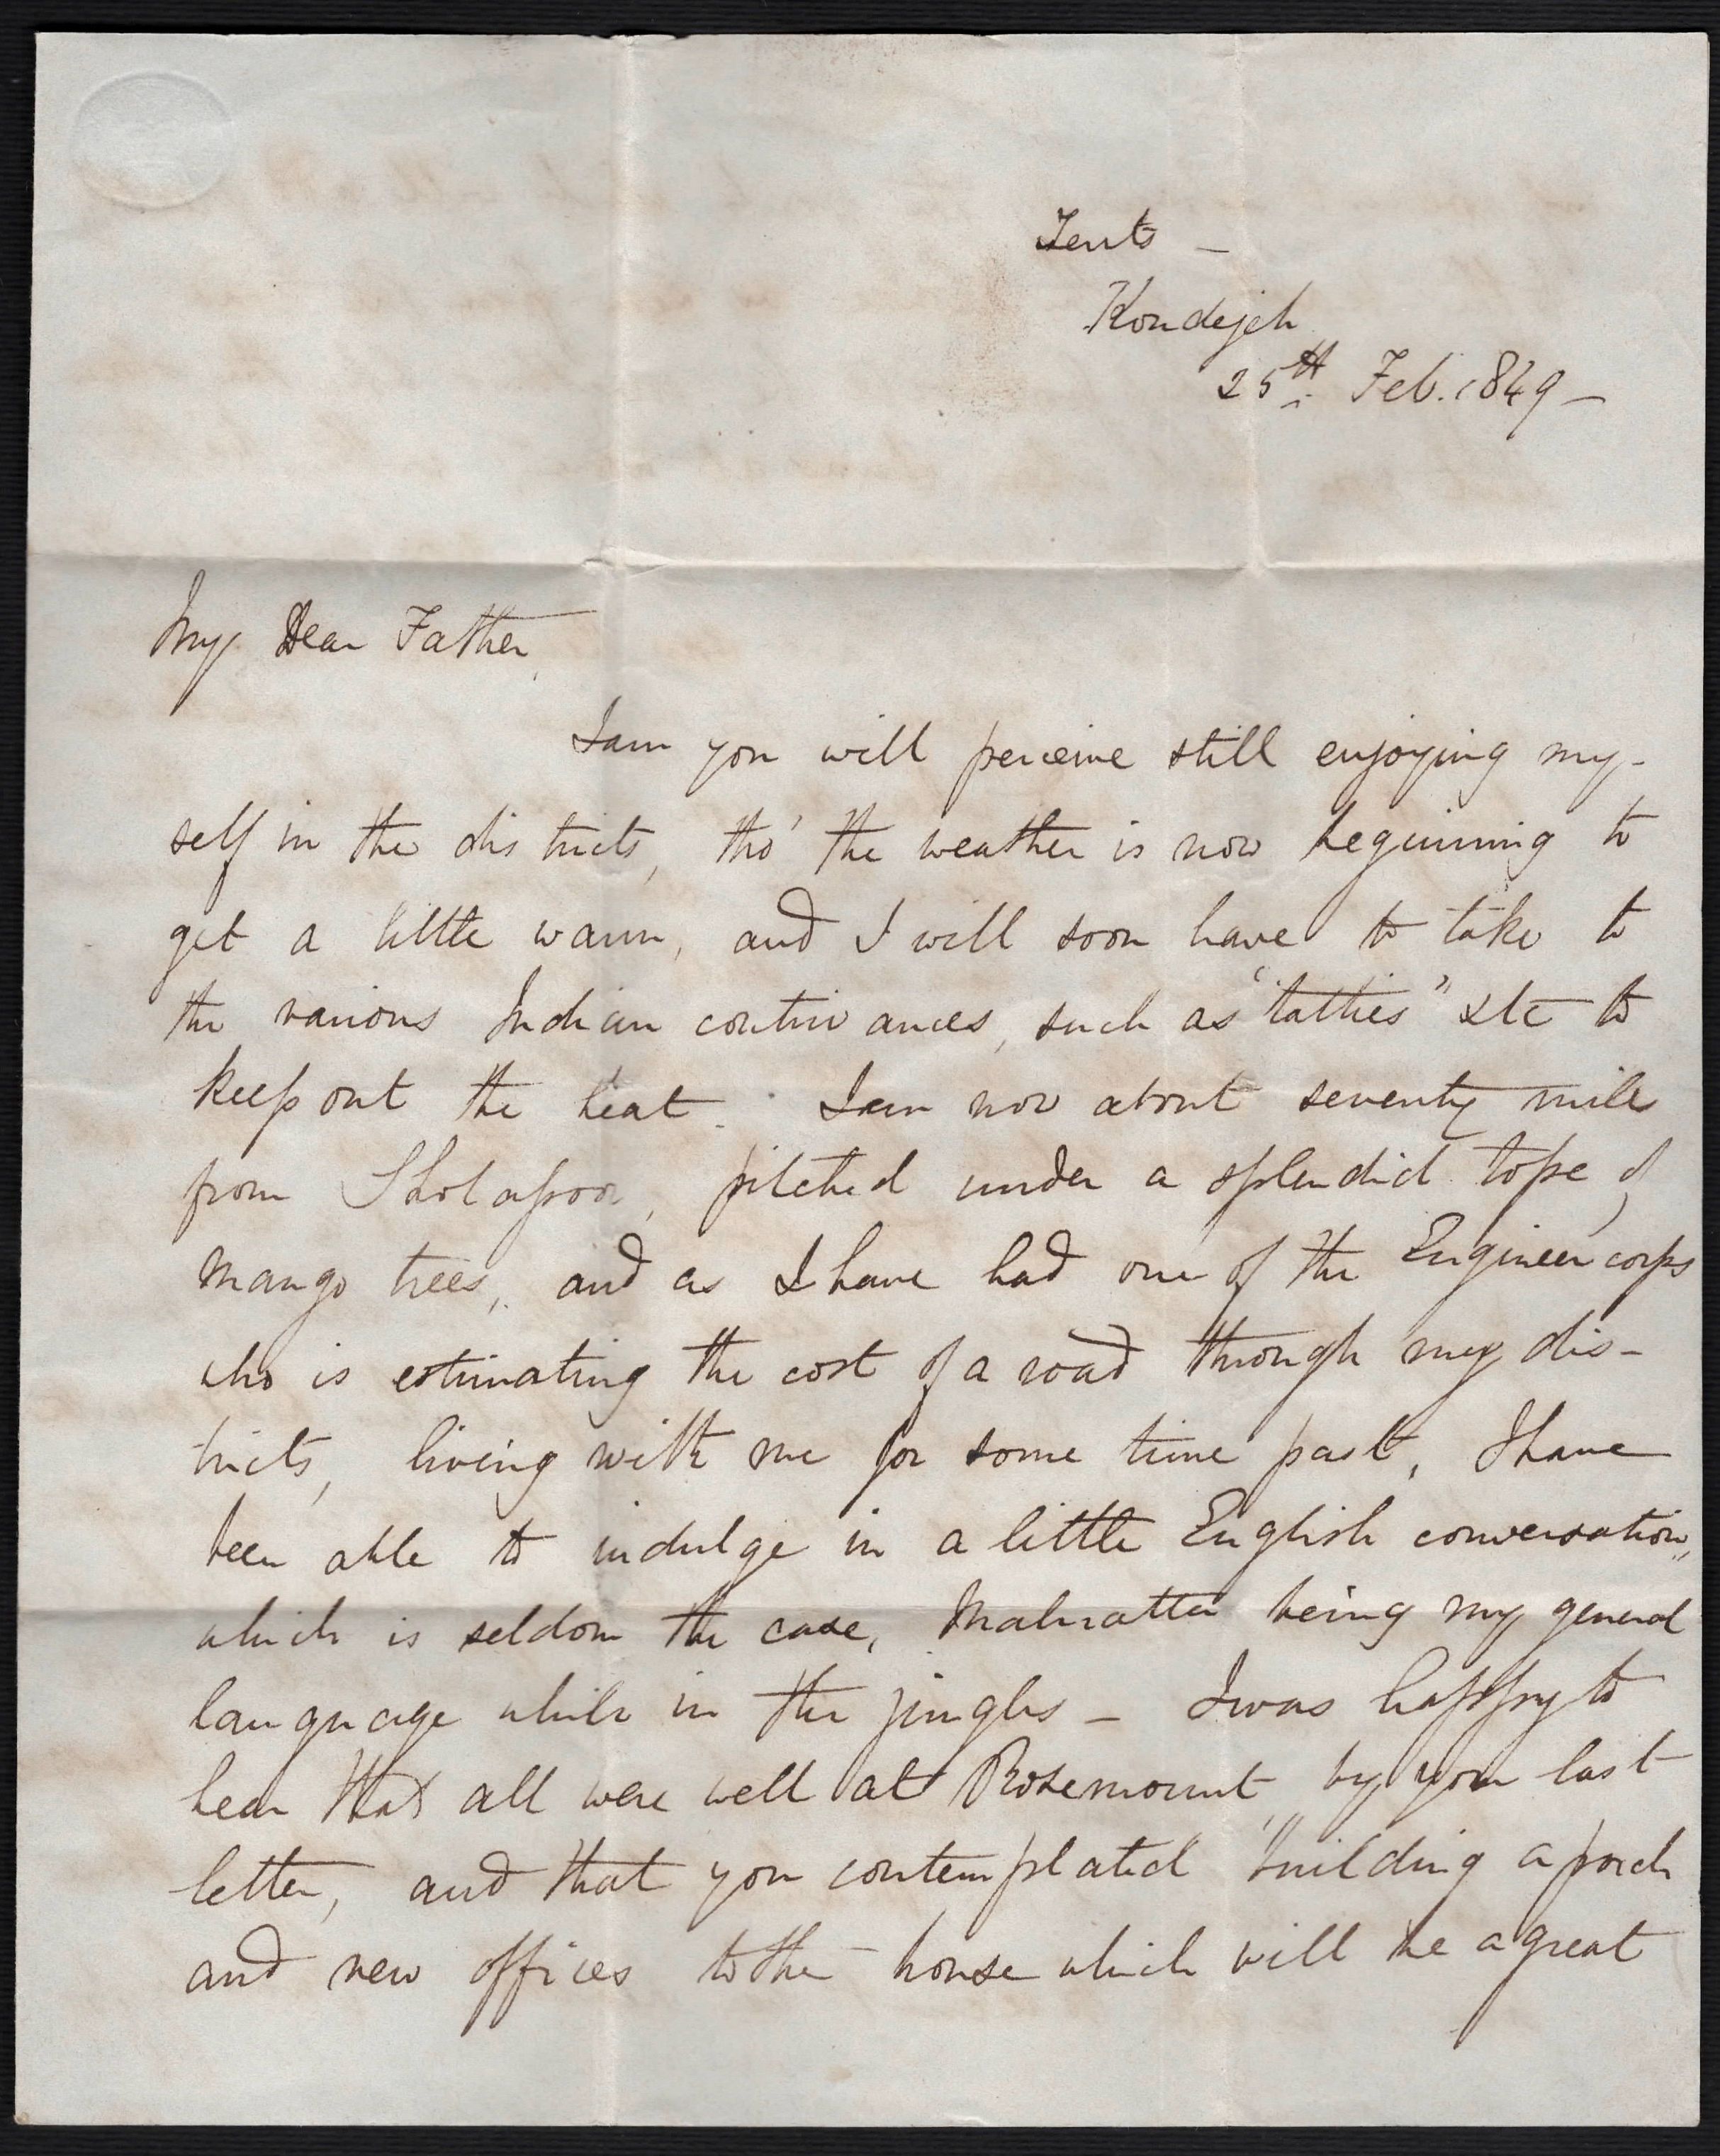 Tents —
Kondejeh
25th Feb. 1849 —
My Dear Father,
I am you will perceive still enjoying my-
self in the districts, tho' the weather is now beginning to
get a little warm, and I will soon have to take to
the various Indian contrivances, such as "tatties" &tc to
keep out the heat. I am now about seventy miles
from Sholapoor, pitched under a splendid tope of
mango trees, and as I have had one of the Engineer corps
who is estimating the cost of a road through my dis-
tricts, living with me for some time past, I have
been able to indulge in a little English conversation,
which is seldom the case, Mahratta being my general
language while in the jungles — I was happy to
hear that all were well at Rosemount, by your last
letter, and that you contemplated building a porch
and new offices to the house which will be a great